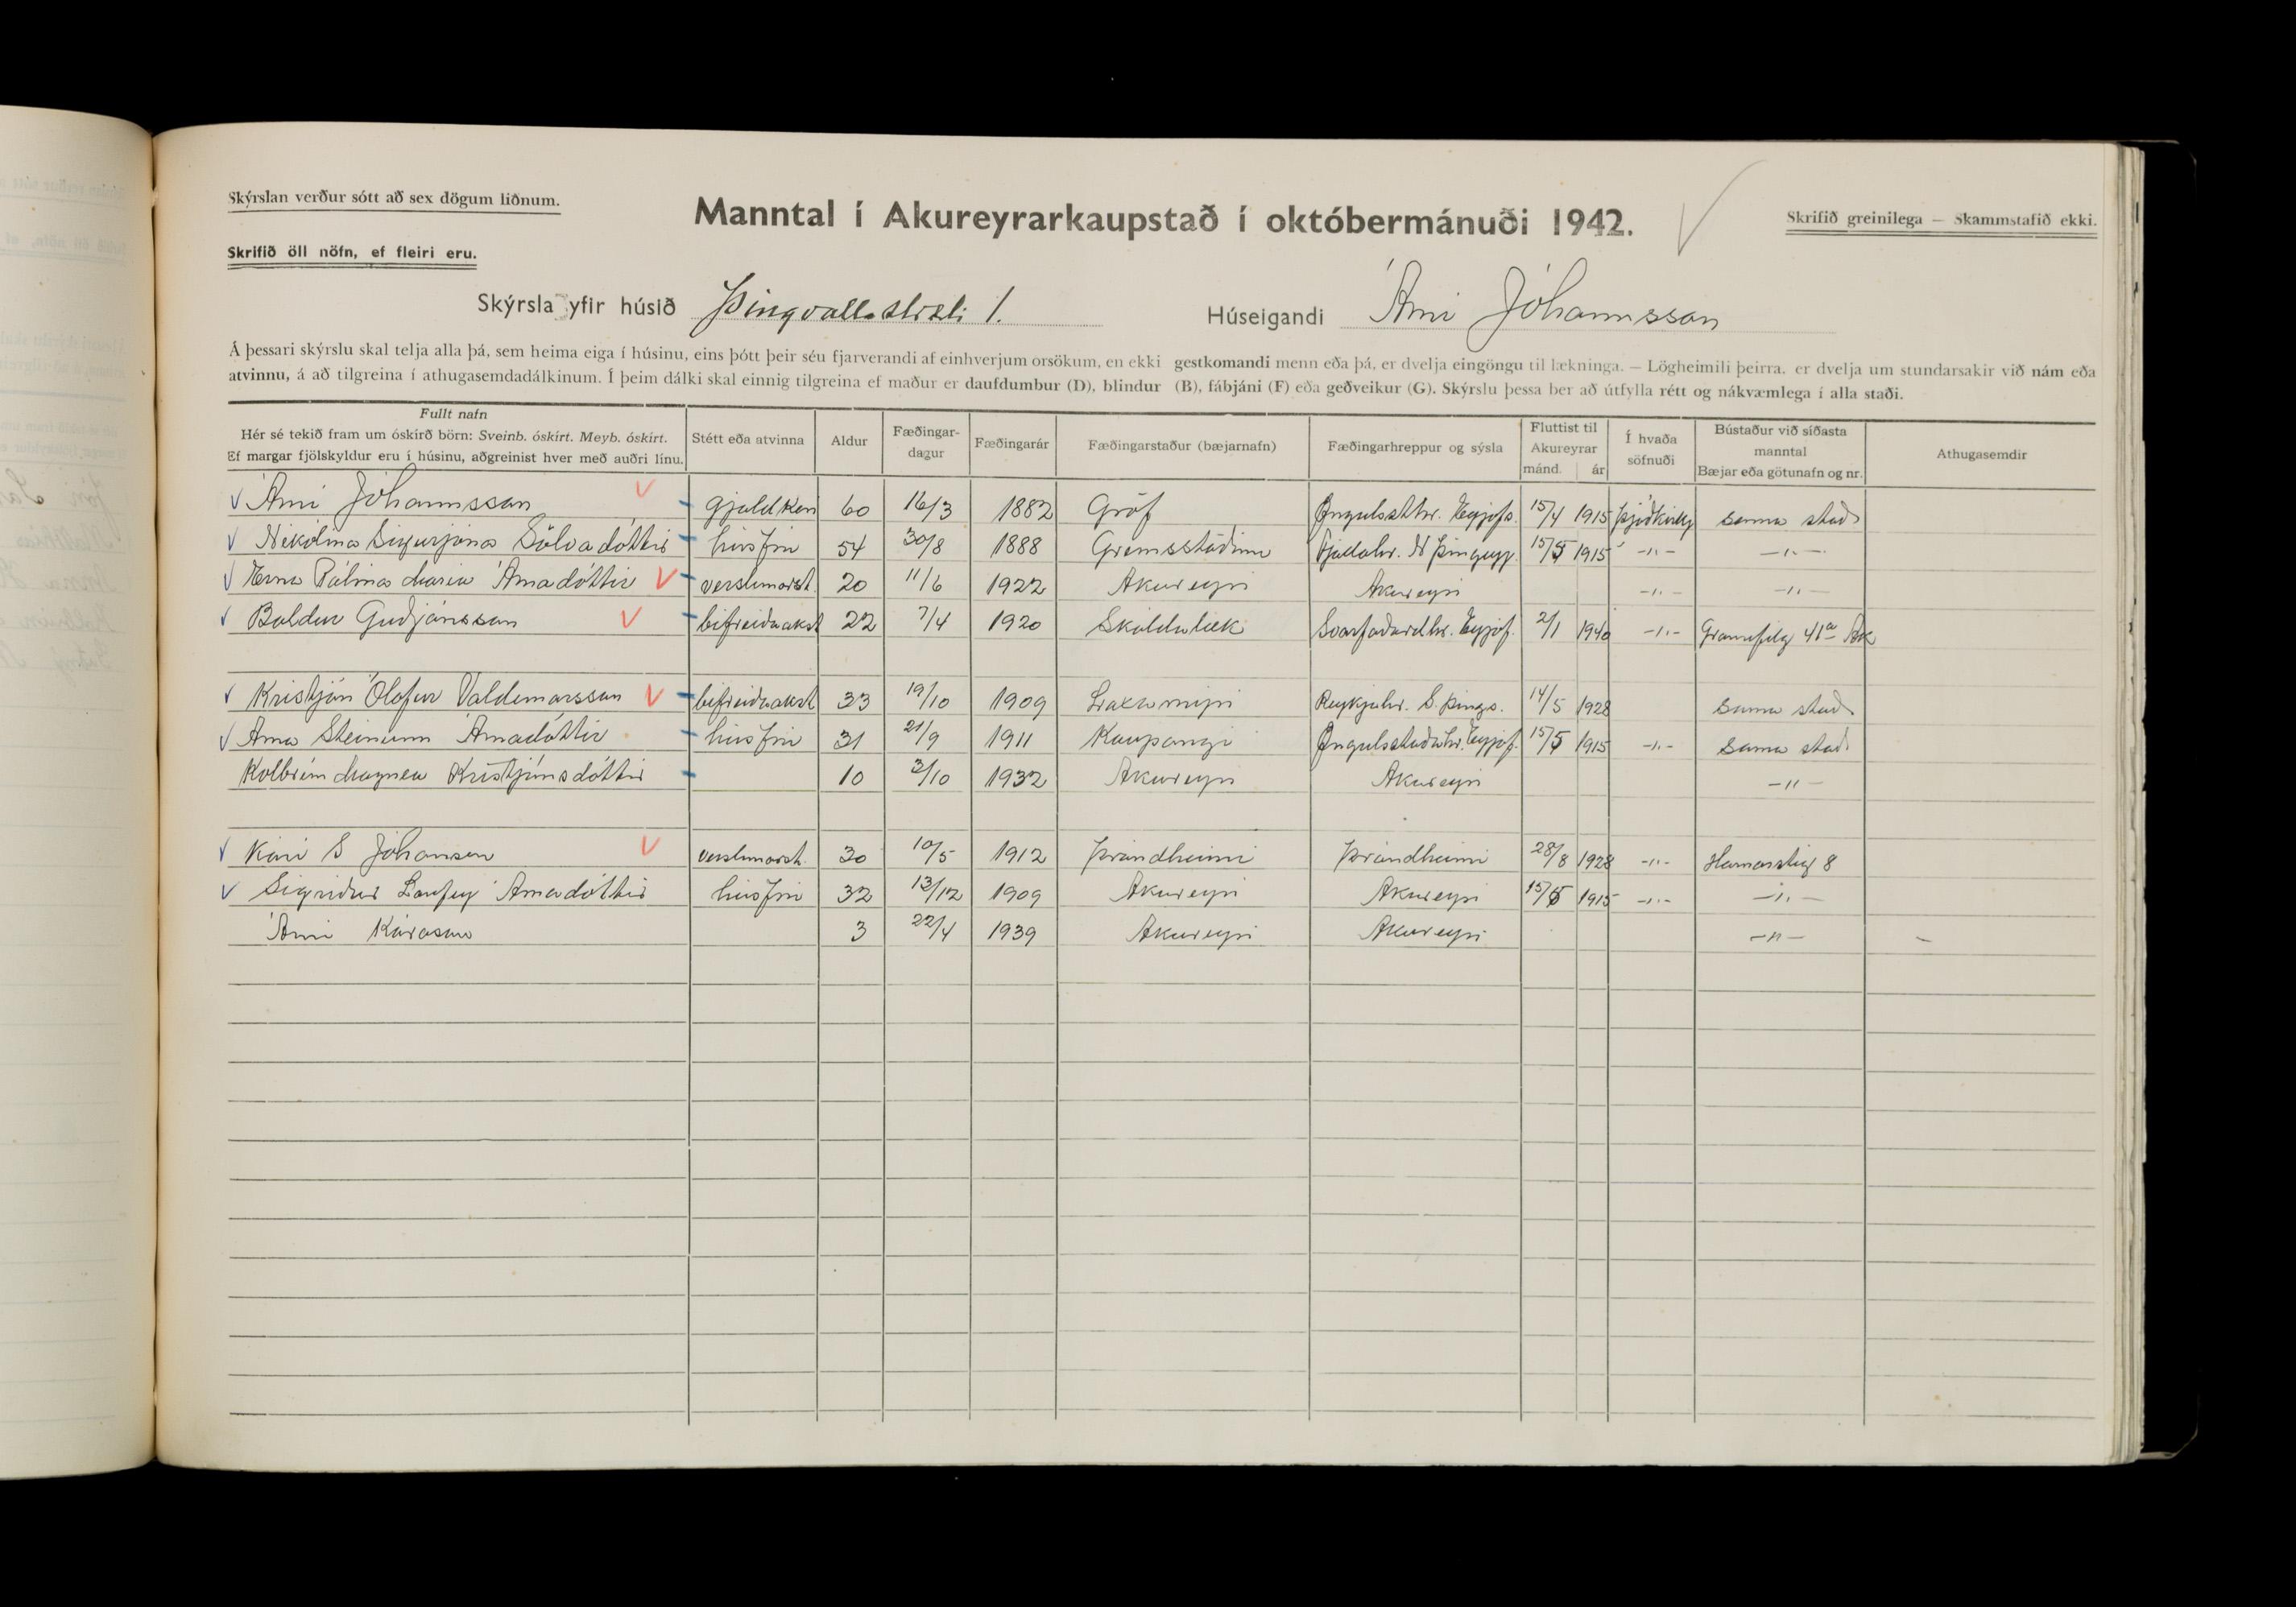 Skýrslan verður sótt að sex dögum liðnum.
Manntal í Akureyrarkaupstað í októbermánuði 1942.
Skrifið greinilega — Skammstafið ekki.
Skrifið öll nöfn, ef fleiri eru.
Skýrsla yfir húsið Þingvallastræti 1.
Húseigandi Árni Jóhannsson
Á þessari skýrslu skal telja alla þá, sem heima eiga í húsinu, eins þótt þeir séu fjarverandi af einhverjum orsökum, en ekki gestkomandi menn eða þá, er dvelja eingöngu til lækninga. — Lögheimili þeirra, er dvelja um stundarsakir við nám eða
atvinnu, á að tilgreina í athugasemdadálkinum. Í þeim dálki skal einnig tilgreina ef maður er daufdumbur (D), blindur (B), fábjáni (F) eða geðveikur (G). Skýrslu þessa ber að útfylla rétt og nákvæmlega í alla staði.
Fullt nafn
Hér sé tekið fram um óskírð börn: Sveinb. óskírt. Meyb. óskírt.
Ef margar fjölskyldur eru í húsinu, aðgreinist hver með auðri línu.
Stétt eða atvinna
Aldur
Fæðingar-
dagur
Fæðingarár
Fæðingarstaður (bæjarnafn)
Fæðingarhreppur og sýsla
Fluttist til
Akureyrar
mánd. ár
Í hvaða
söfnuði
Bústaður við síðasta
manntal
Bæjar eða götunafn og nr.
Athugasemdir
Árni Jóhannsson gjaldkeri 60 16/3 1882 Gróf Öngulssthr. Eyjafs. 15/4 1915 þjóðkirkj sama stað
Nikólína Sigurjóna Sölvadóttir húsfrú 54 30/8 1888 Grímsstöðum Fjallahr. N Þingeyj. 15/5 1915 -"- -"-
Erna Pálína María Árnadóttir verslunarst. 20 11/6 1922 Akureyri Akureyri -"- -"-
Baldur Guðjónsson bifreiðaakst 22 7/4 1920 Skáldalæk Svarfaðardhr. Eyjaf. 2/1 1940 -"- Gránufélg 41a Ak
Kristján Ólafur Valdemarsson bifreiðaakst 33 19/10 1909 Laxamýri Reykjahr. S. Þings. 14/5 1928 sama stað
Anna Steinunn Árnadóttir húsfrú 31 21/9 1911 Kaupangi Öngulsstaðahr. Eyjaf. 15/5 1915 -"- sama stað
Kolbrún Magnea Kristjánsdóttir 10 3/10 1932 Akureyri Akureyri -"-
Kári S Jóhansen verslunarst. 30 10/5 1912 Þrándheimi Þrándheimi 28/8 1928 -"- Hamarstíg 8
Sigríður Laufey Árnadóttir húsfrú 32 13/12 1909 Akureyri Akureyri 15/5 1915 -"- -"-
Árni Kárason 3 22/4 1939 Akureyri Akureyri -"-